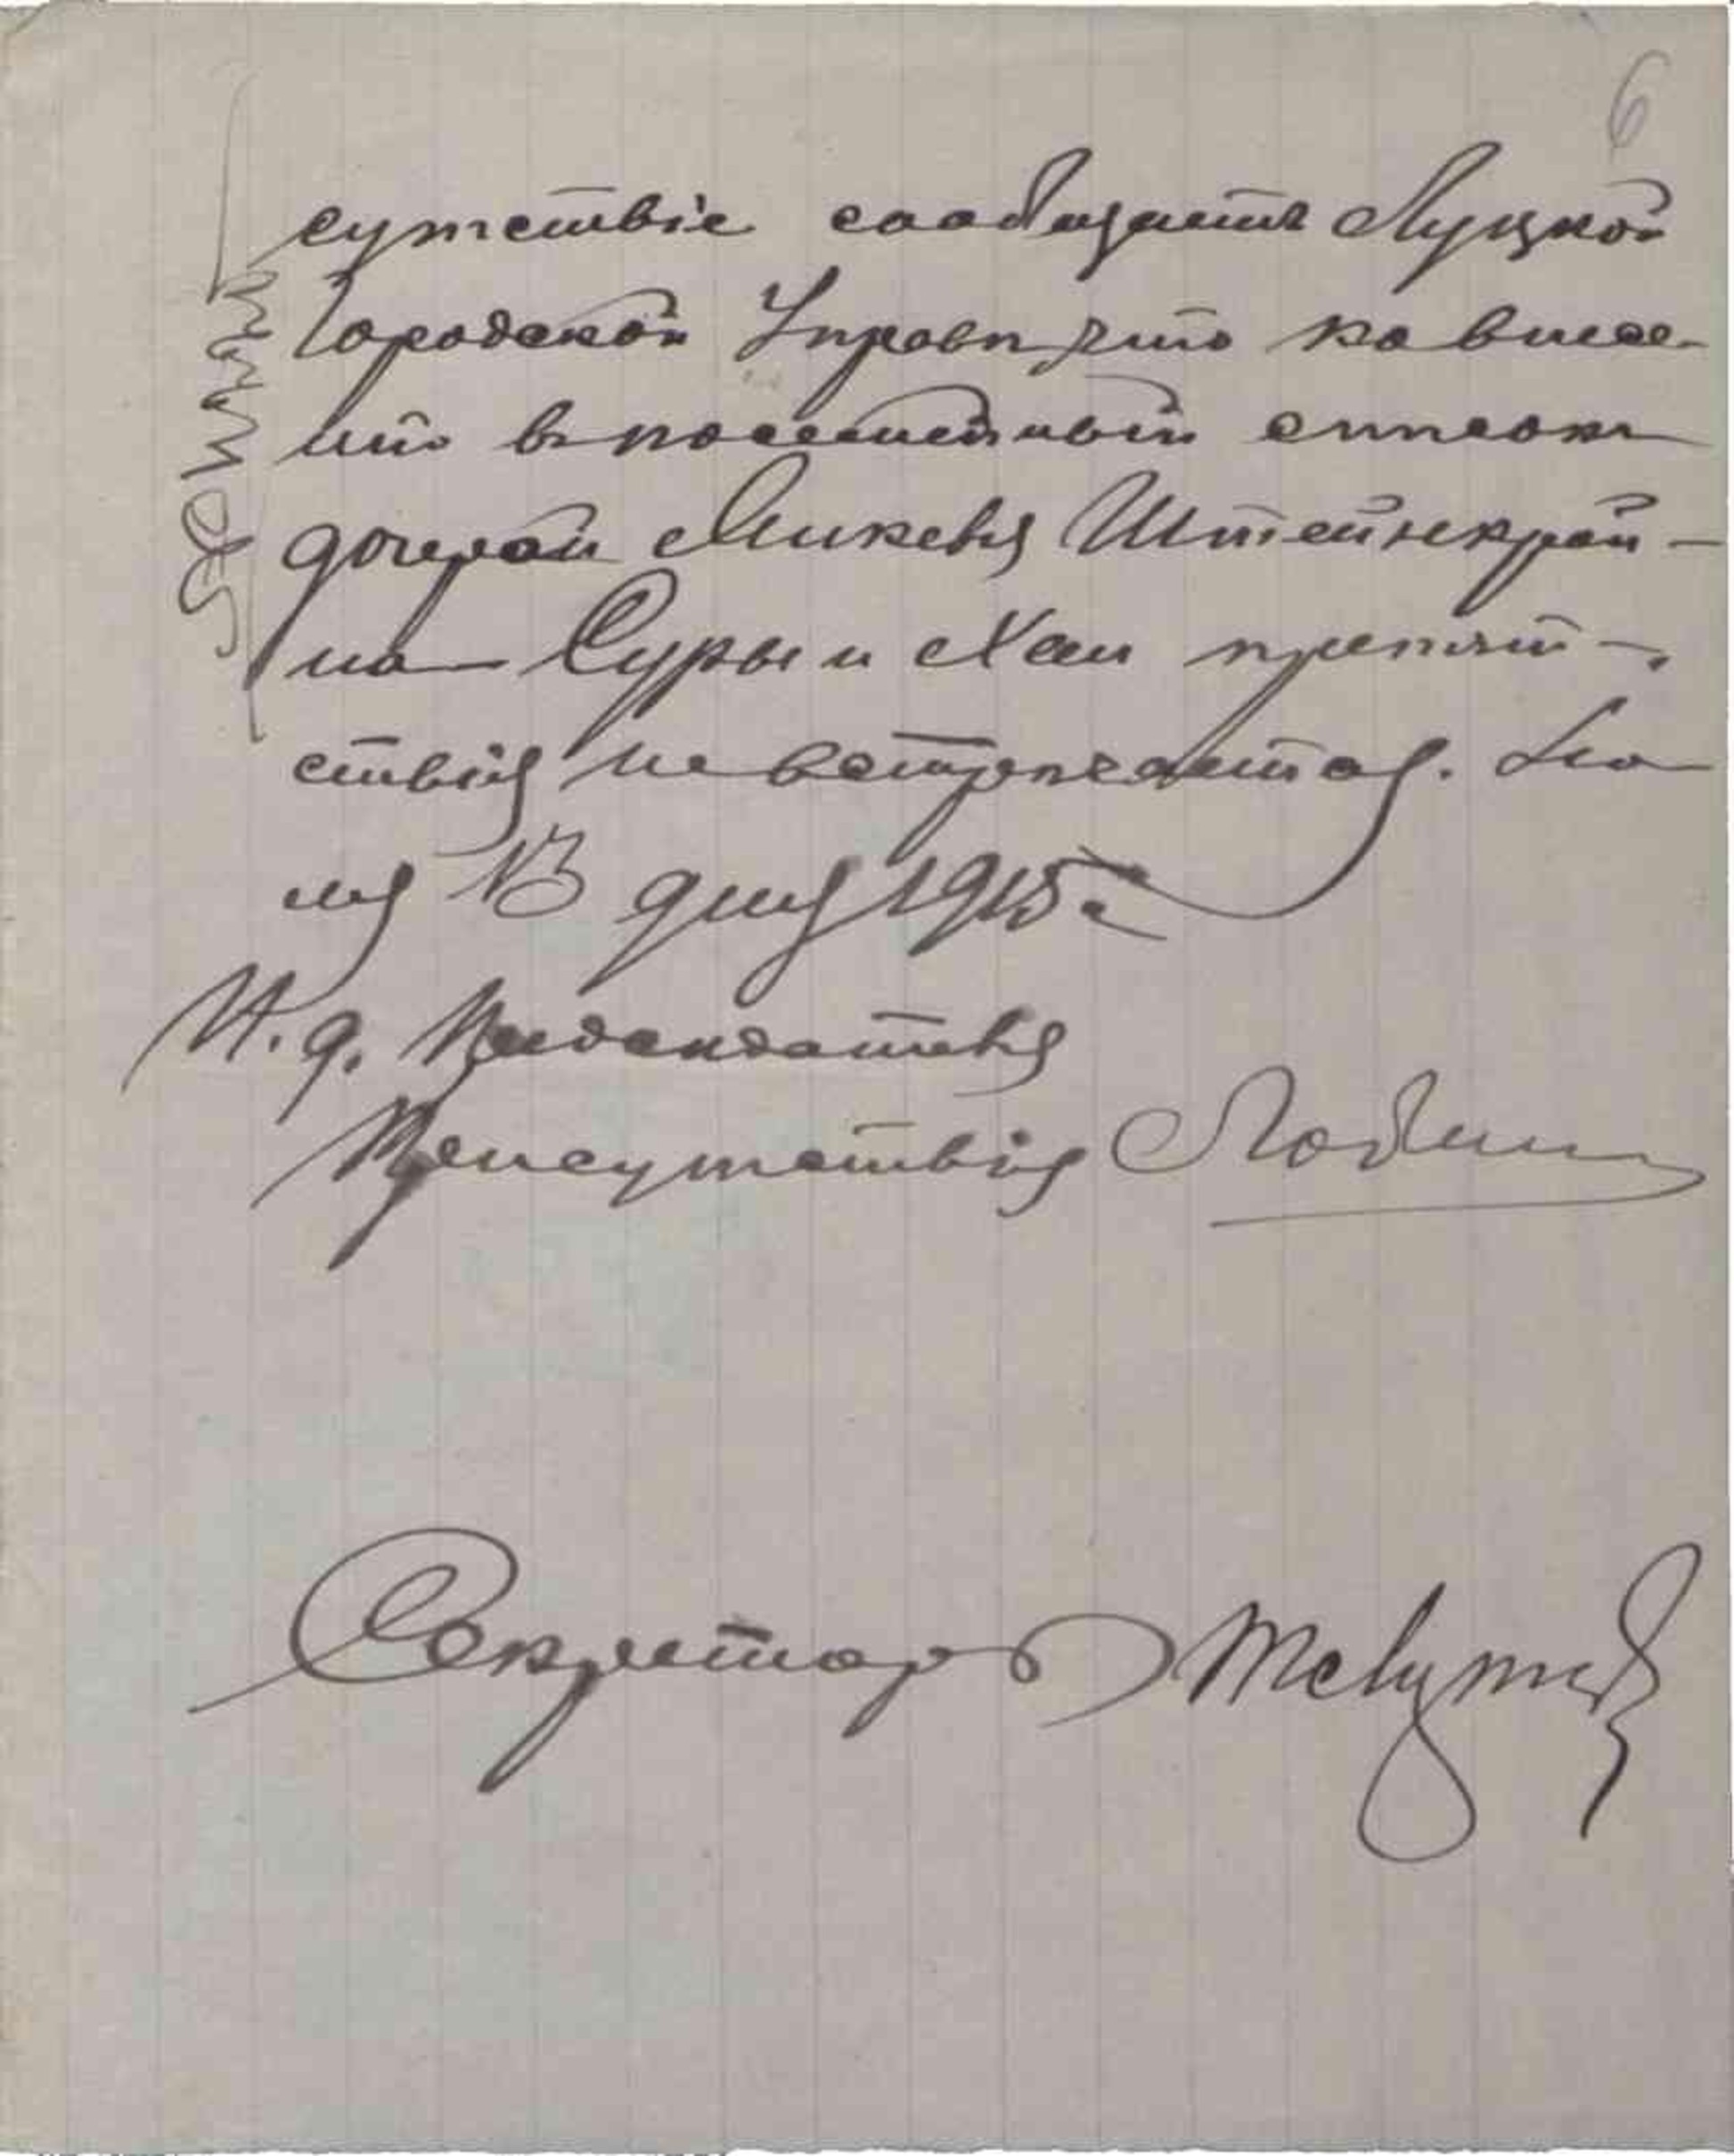 6
сутствіе сообщаетъ Луцкой
Городской Управѣ, что ко внесе-
нію въ посемейный списокъ
дочерей Микеля Штейнкрой-
на Суры и Хаи препят-
ствія не встрѣчается. Ію
ня 13 дня 1915 г.
И. д. Предсѣдателя
Присутствія
Секретарь